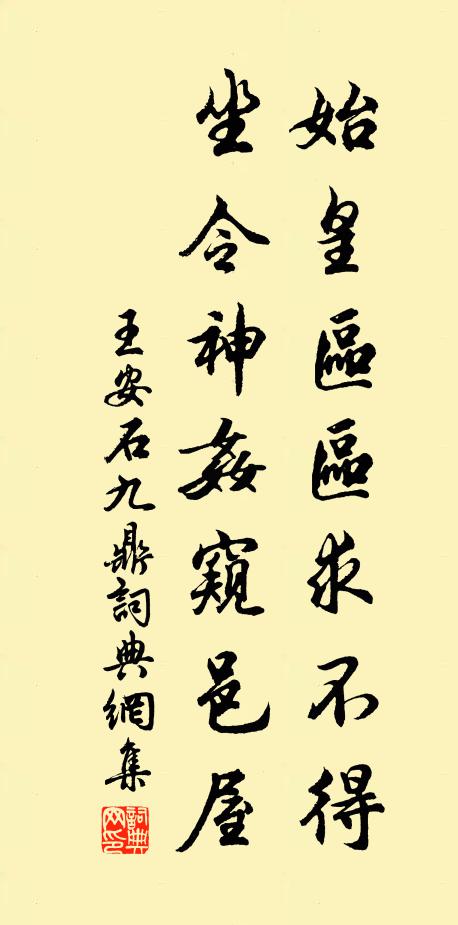 始皇區區求不得
坐令神姦窺邑屋
王安石九鼎詞典網集
詞典網印